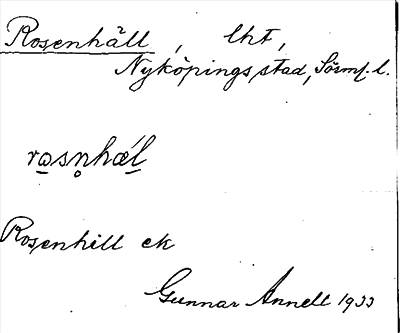 Rosenhäll, lht,
Nyköpings stad, Sörml. l.
rosn̥hǽl
Rosenhill ek
Gunnar Annell 1933